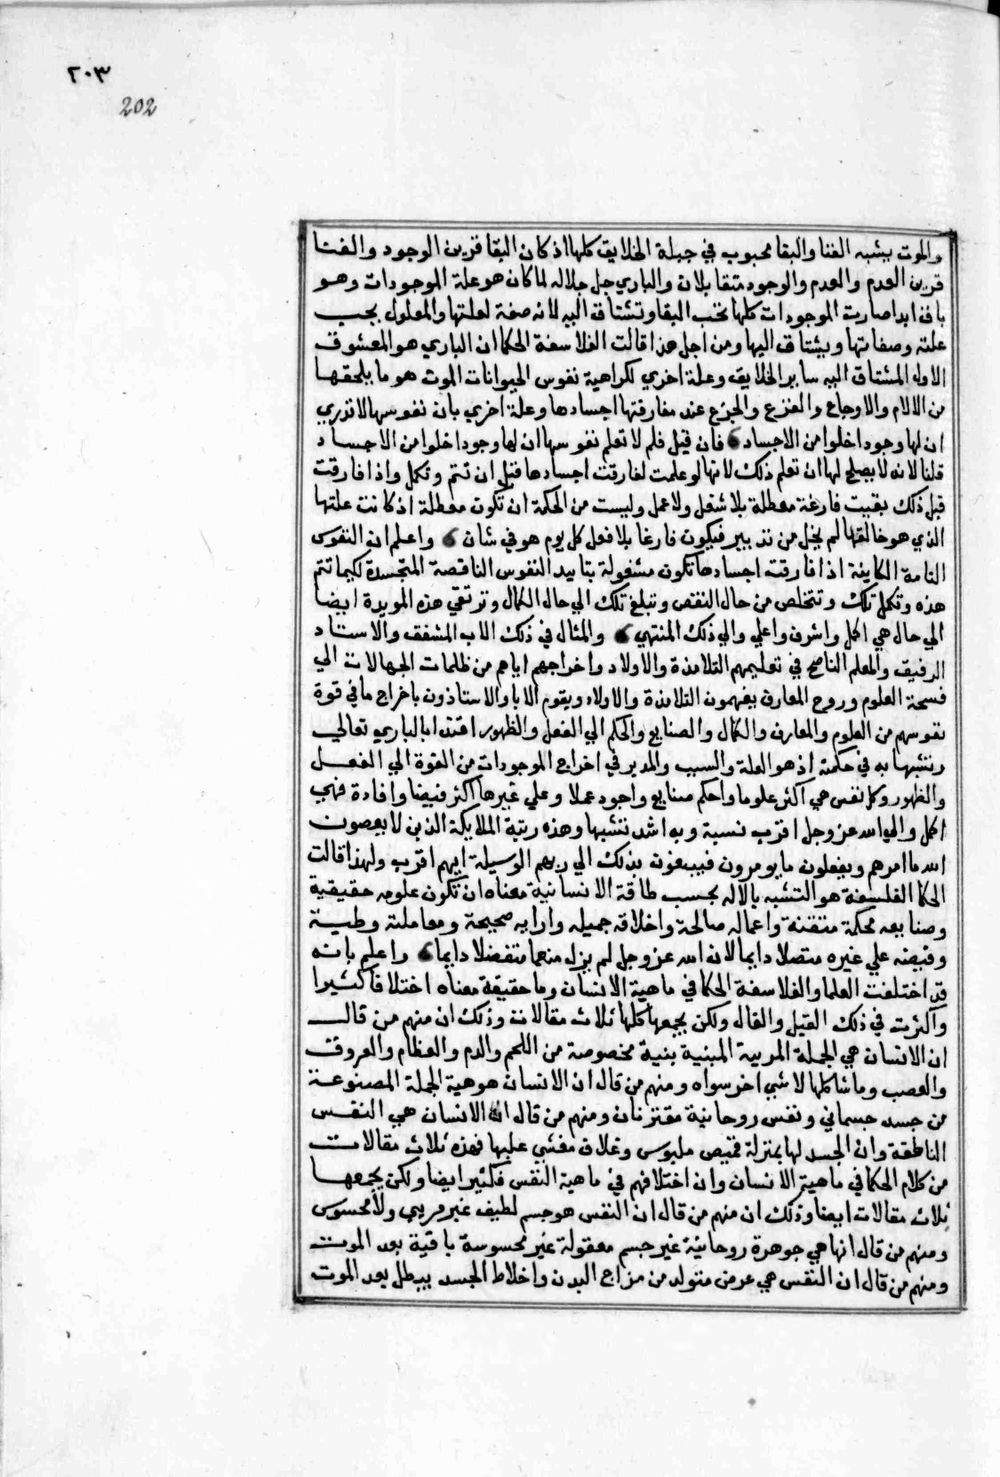 ٢٠٣
202
والموت يشبه الفنا والبقا محبوب في جبلة الخلايق كلها اذ كان البقا قرين الوجود والفنا
قرين العدم والعدم والوجود متقابلان والباري جل جلاله لما كان هو علة الموجودات وهو
باق ابدا صارت الموجودات كلها تحب البقا وتشتاق اليه لانه صفة لعلتها والمعلول يحب
علته وصفاتها ويشتاق اليها ومن اجل هذا قالت الفلاسفة الحكما ان الباري هو المعشوق
الاول المشتاق اليه ساير الخلايق وعلة اخري لكراهية نفوس الحيوانات الموت هو ما يلحقها
من الالام والاوجاع والفزع والجزع عند مفارقتها اجسادها وعلة اخري بان نفوسها لا تدري
ان لها وجودا خلوا من الاجساد فان قيل فلم لا تعلم نفوسها ان لها وجودا خلوا من الاجساد
قلنا لانه لا يصلح لها ان تعلم ذلك لانها لو علمت لفارقت اجسادها قبل ان تتم وتكمل واذا فارقت
قبل ذلك بقيت فارغة معطلة بلا شغل ولا عمل وليست من الحكمة ان تكون معطلة اذ كانت علتها
الذي هو خالقها لم يخل من تدبير فيكون فارغا بلا فعل كل يوم هو في شان واعلم ان النفوس
التامة الكاملة اذا فارقت اجسادها تكون مشغولة بتاييد النفوس الناقصة المتجسدة لكيما تتم
هذه وتكمل تلك وتتخلص من حال النقص وتبلغ تلك الي حال الكمال وترتقي هذه المويدة ايضا
الي حال هي اكمل واشرف واعلي والي ذلك المنتهي والمثال في ذلك الاب المشفق والاستاد
الرفيق والمعلم الناصح في تعليمهم التلامذة والاولاد واخراجهم اياهم من ظلمات الجهالات الي
فسحة العلوم وروح المعارف يفهمون التلامذة والاولاد ويقوم الابا والاستاذون باخراج ما في قوة
نفوسهم من العلوم والمعارف والكمال والصنايع والحكم الي الفعل والظهور اقتدا بالباري تعالي
وتشبها به في حكمته اذ هو العلة والسبب والمدبر في اخراج الموجودات من القوة الي الفعل
والظهور وكل نفس هي اكثر علوما واحكم صنايع واجود عملا وعلي غيرها اكثر فيضا وافادة فهي
اكمل والي الله عز وجل اقرب نسبة وبه اشد تشبها وهذه رتبة الملايكة الذين لا يعصون
الله ما امرهم ويفعلون ما يومرون فيبتغون بذلك الي ربهم الوسيلة ايهم اقرب ولهذا قالت
الحكما الفلسفة هو التشبه بالاله بحسب طاقة الانسانية معناه ان تكون علومه حقيقية
وصنايعه محكمة متقنة واعماله صالحة واخلاقه جميله وارايه صحيحة ومعاملته وطية
وفيضه علي غيره متصلا دايما لانه الله عز وجل لم يزل منعما متفضلا دايما واعلم بانه
قد اختلفت العلما والفلاسفة الحكما في ماهية الانسان وما حقيقة معناه اختلافا كثيرا
واكثرت في ذلك القيل والقال ولكن يجمعها كلها ثلاث مقالات وذلك ان منهم من قال
ان الانسان هي الجملة المربية المبنية بنية مخصوصة من اللحم والدم والعظام والعروق
والعصب وما شاكلها لا شي اخر سواه ومنهم من قال ان الانسان هو هية الجملة المصنوعة
من جسد جسماني ونفس روحانية مقترنان ومنهم من قال ان الانسان هي النفس
الناطقة وان الجسد لها بمنزلة قميص ملبوس وغلاف مغشي عليها فهذه ثلاث مقالات
من كلام الحكما في ماهية الانسان وان اختلافهم في ماهية النفس فكثير ايضا ولكن يجمعها
ثلاث مقالات ايضا وذلك ان منهم من قال ان النفس هو جسم لطيف غير مريي ولا محسوس
ومنهم من قال انها هي جوهرة روحانية غير جسم معقولة غير محسوسة باقية بعد الموت
ومنهم من قال ان النفس هي عرض متولد من مزاج البدن واخلاط الجسد يبطل بعد الموت